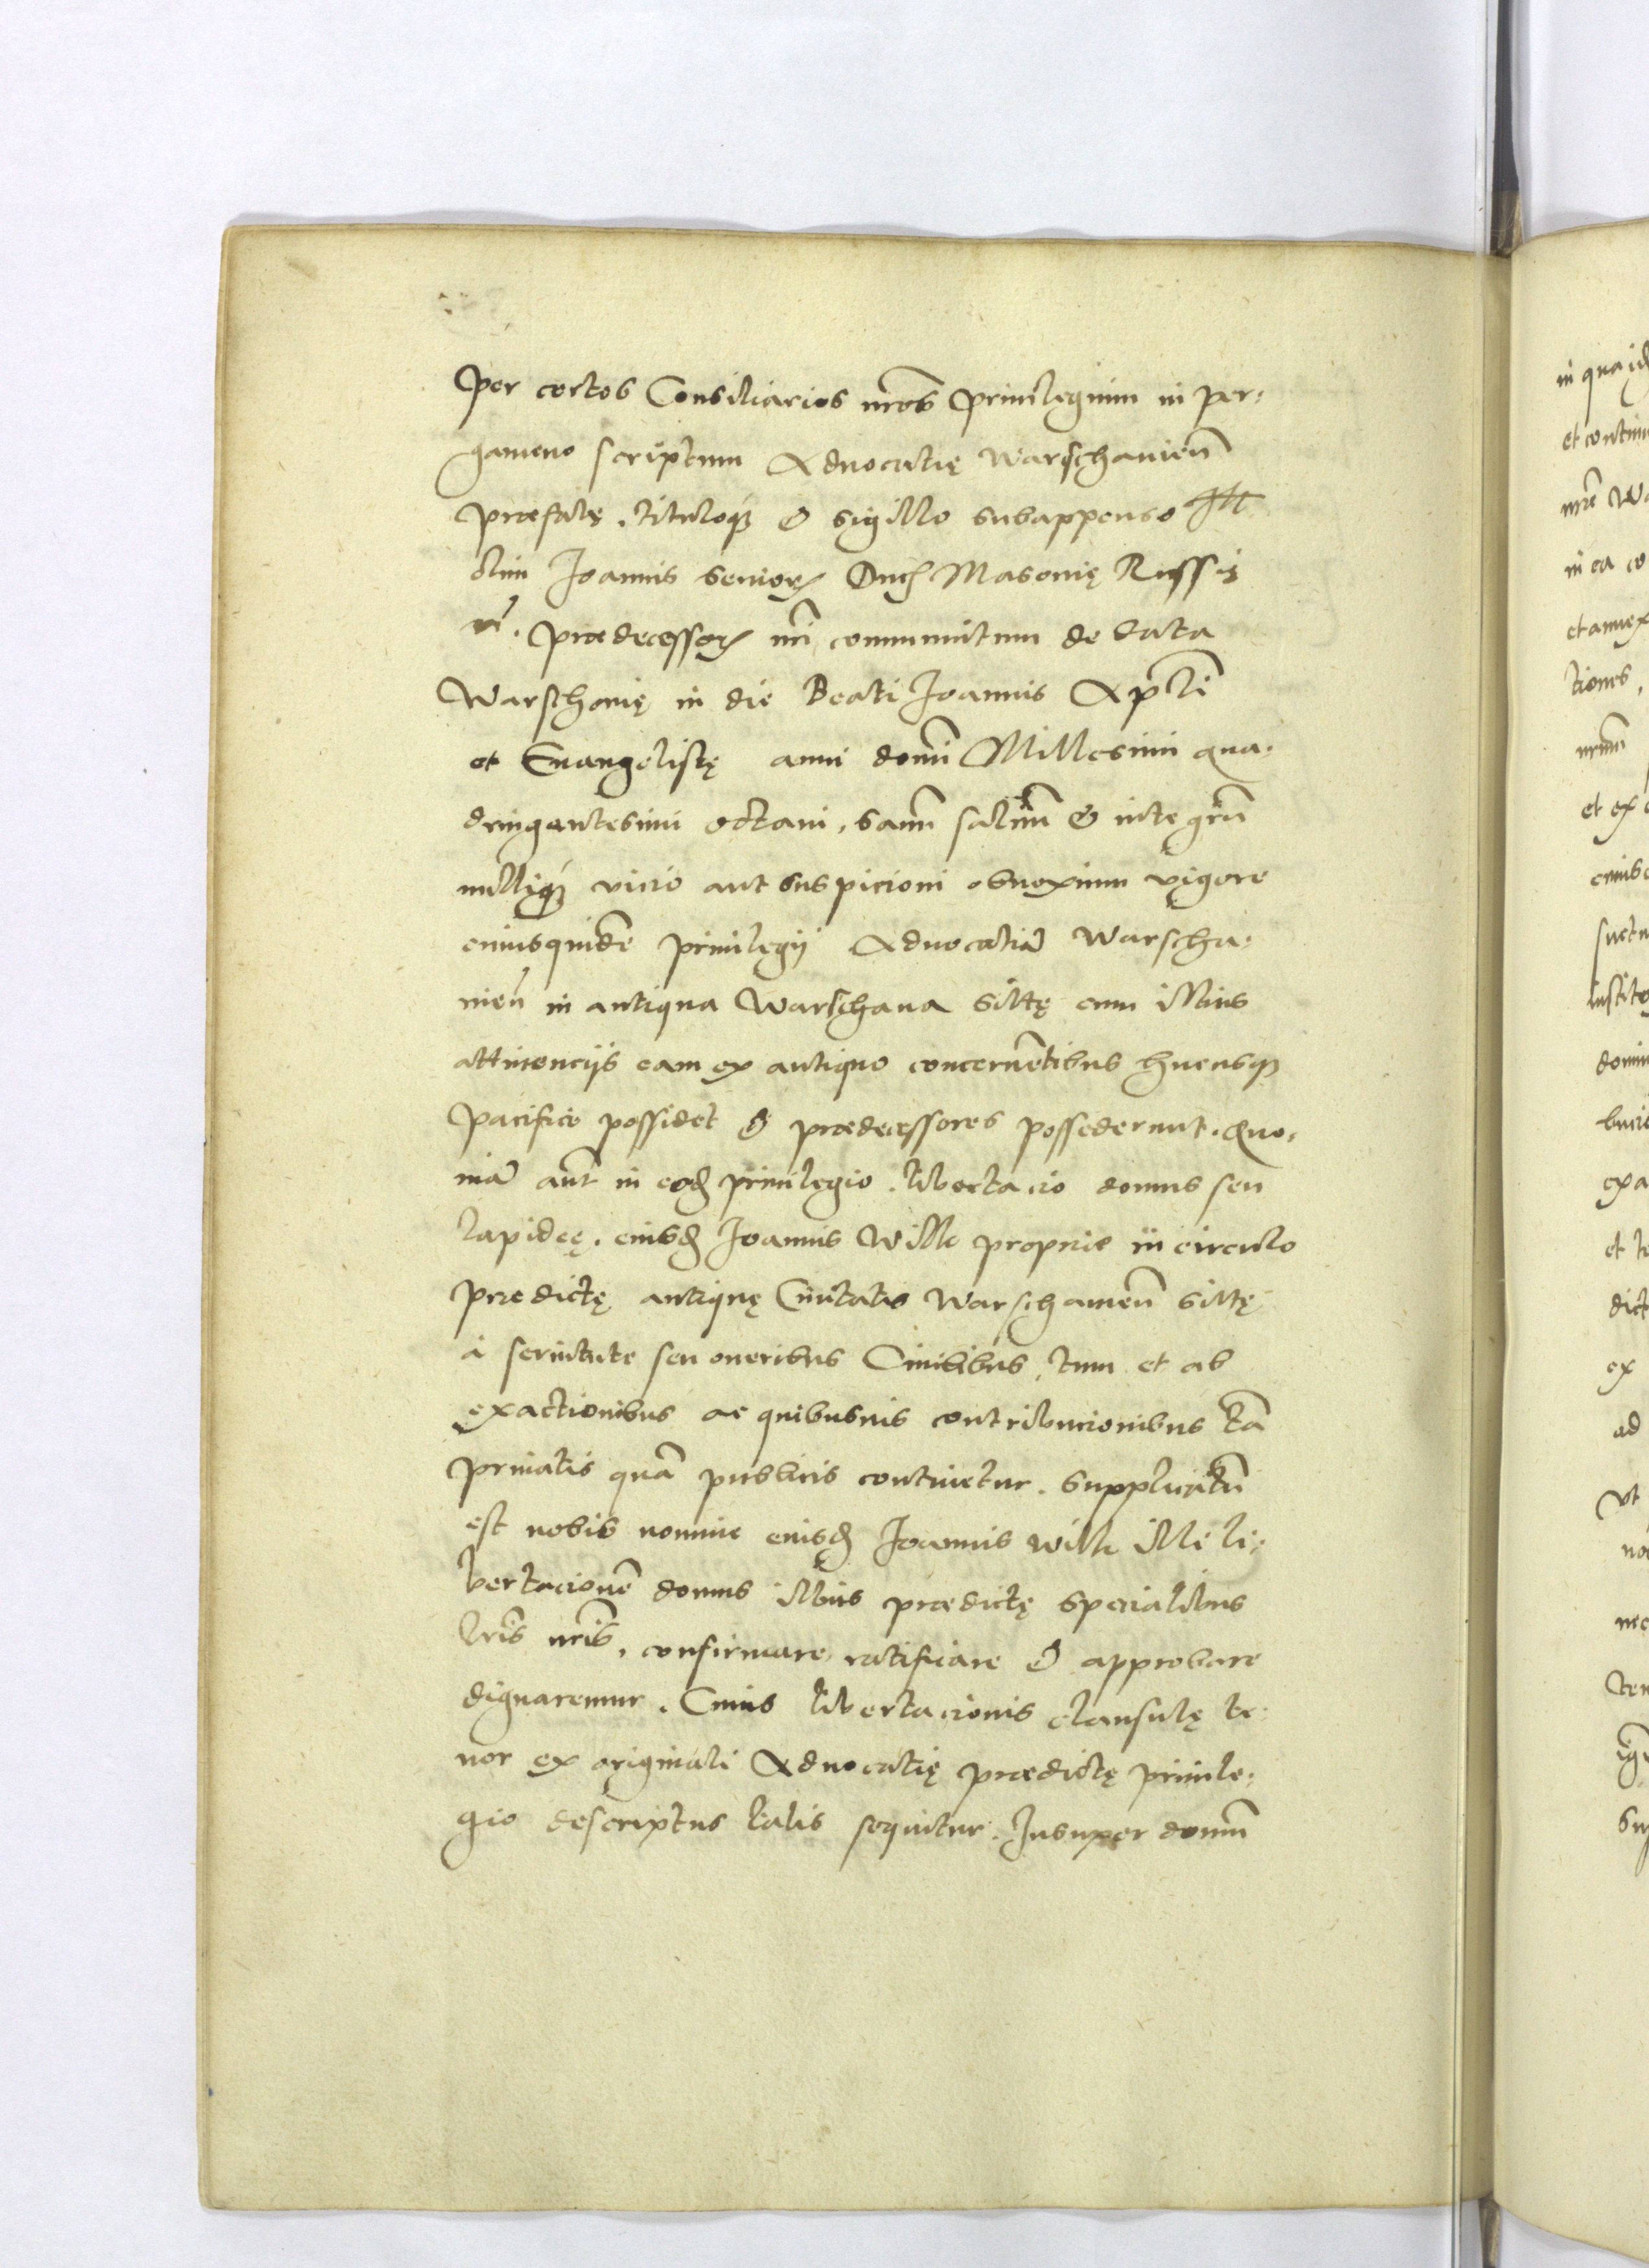 Per certos Consiliarios nr̃os Priuilegium in per-
gameno scriptum Aduocatię Warschauieñ
præfatę. tituloq; & sigillo subappenso Ill.
olim Joannis senioris Ducis Masouię Russię
rc̃. prædecessoris nr̃i communitum de data
Warschouię in die Beati Joannis Apl̃i
et Euangelistę anni domĩ Millesimi qua-
dringentesimi octaui, sanũ saluũ & integrũ
nulliq; vicio aut suspicioni obnoxium vigore
cuiusquidẽ priuilegij Aduocatiã Warscha-
uieñ in antiqua Warschaua sittę cum illius
attinencijs eam ex antiquo concernẽtibus hucusq;
pacifice possidet & prædecessores possederunt. Quo-
niã aũt in eod. priuilegio. libertacio domus seu
lapideę. eiusd. Joannis Wille proprie in circulo
prædictę antiquę Ciuitatis Warschauieñ sittę
à seruitute seu oneribus Ciuilibus, tum et ab
exactionibus ac quibusuis contribucionibus tã
priuatis quã publicis continetur. Supplicatũ
est nobis nomine eiusd. Joannis Wille illi li-
bertacionẽ domus illius prædictę specialibus
lr̃is nr̃is, confirmare, ratificare & approbare
dignaremur. Cuius libertacionis clausulę te-
nor ex originali Aduocatię prædictę priuile-
gio descriptus talis sequitur. Insuper domũ
in qua
et continu
nr̃e Wa
in ea co
et annex
tiones,
nrm̃
et ex
domin
exa
et te
dict
ex
ad
Vt
nec